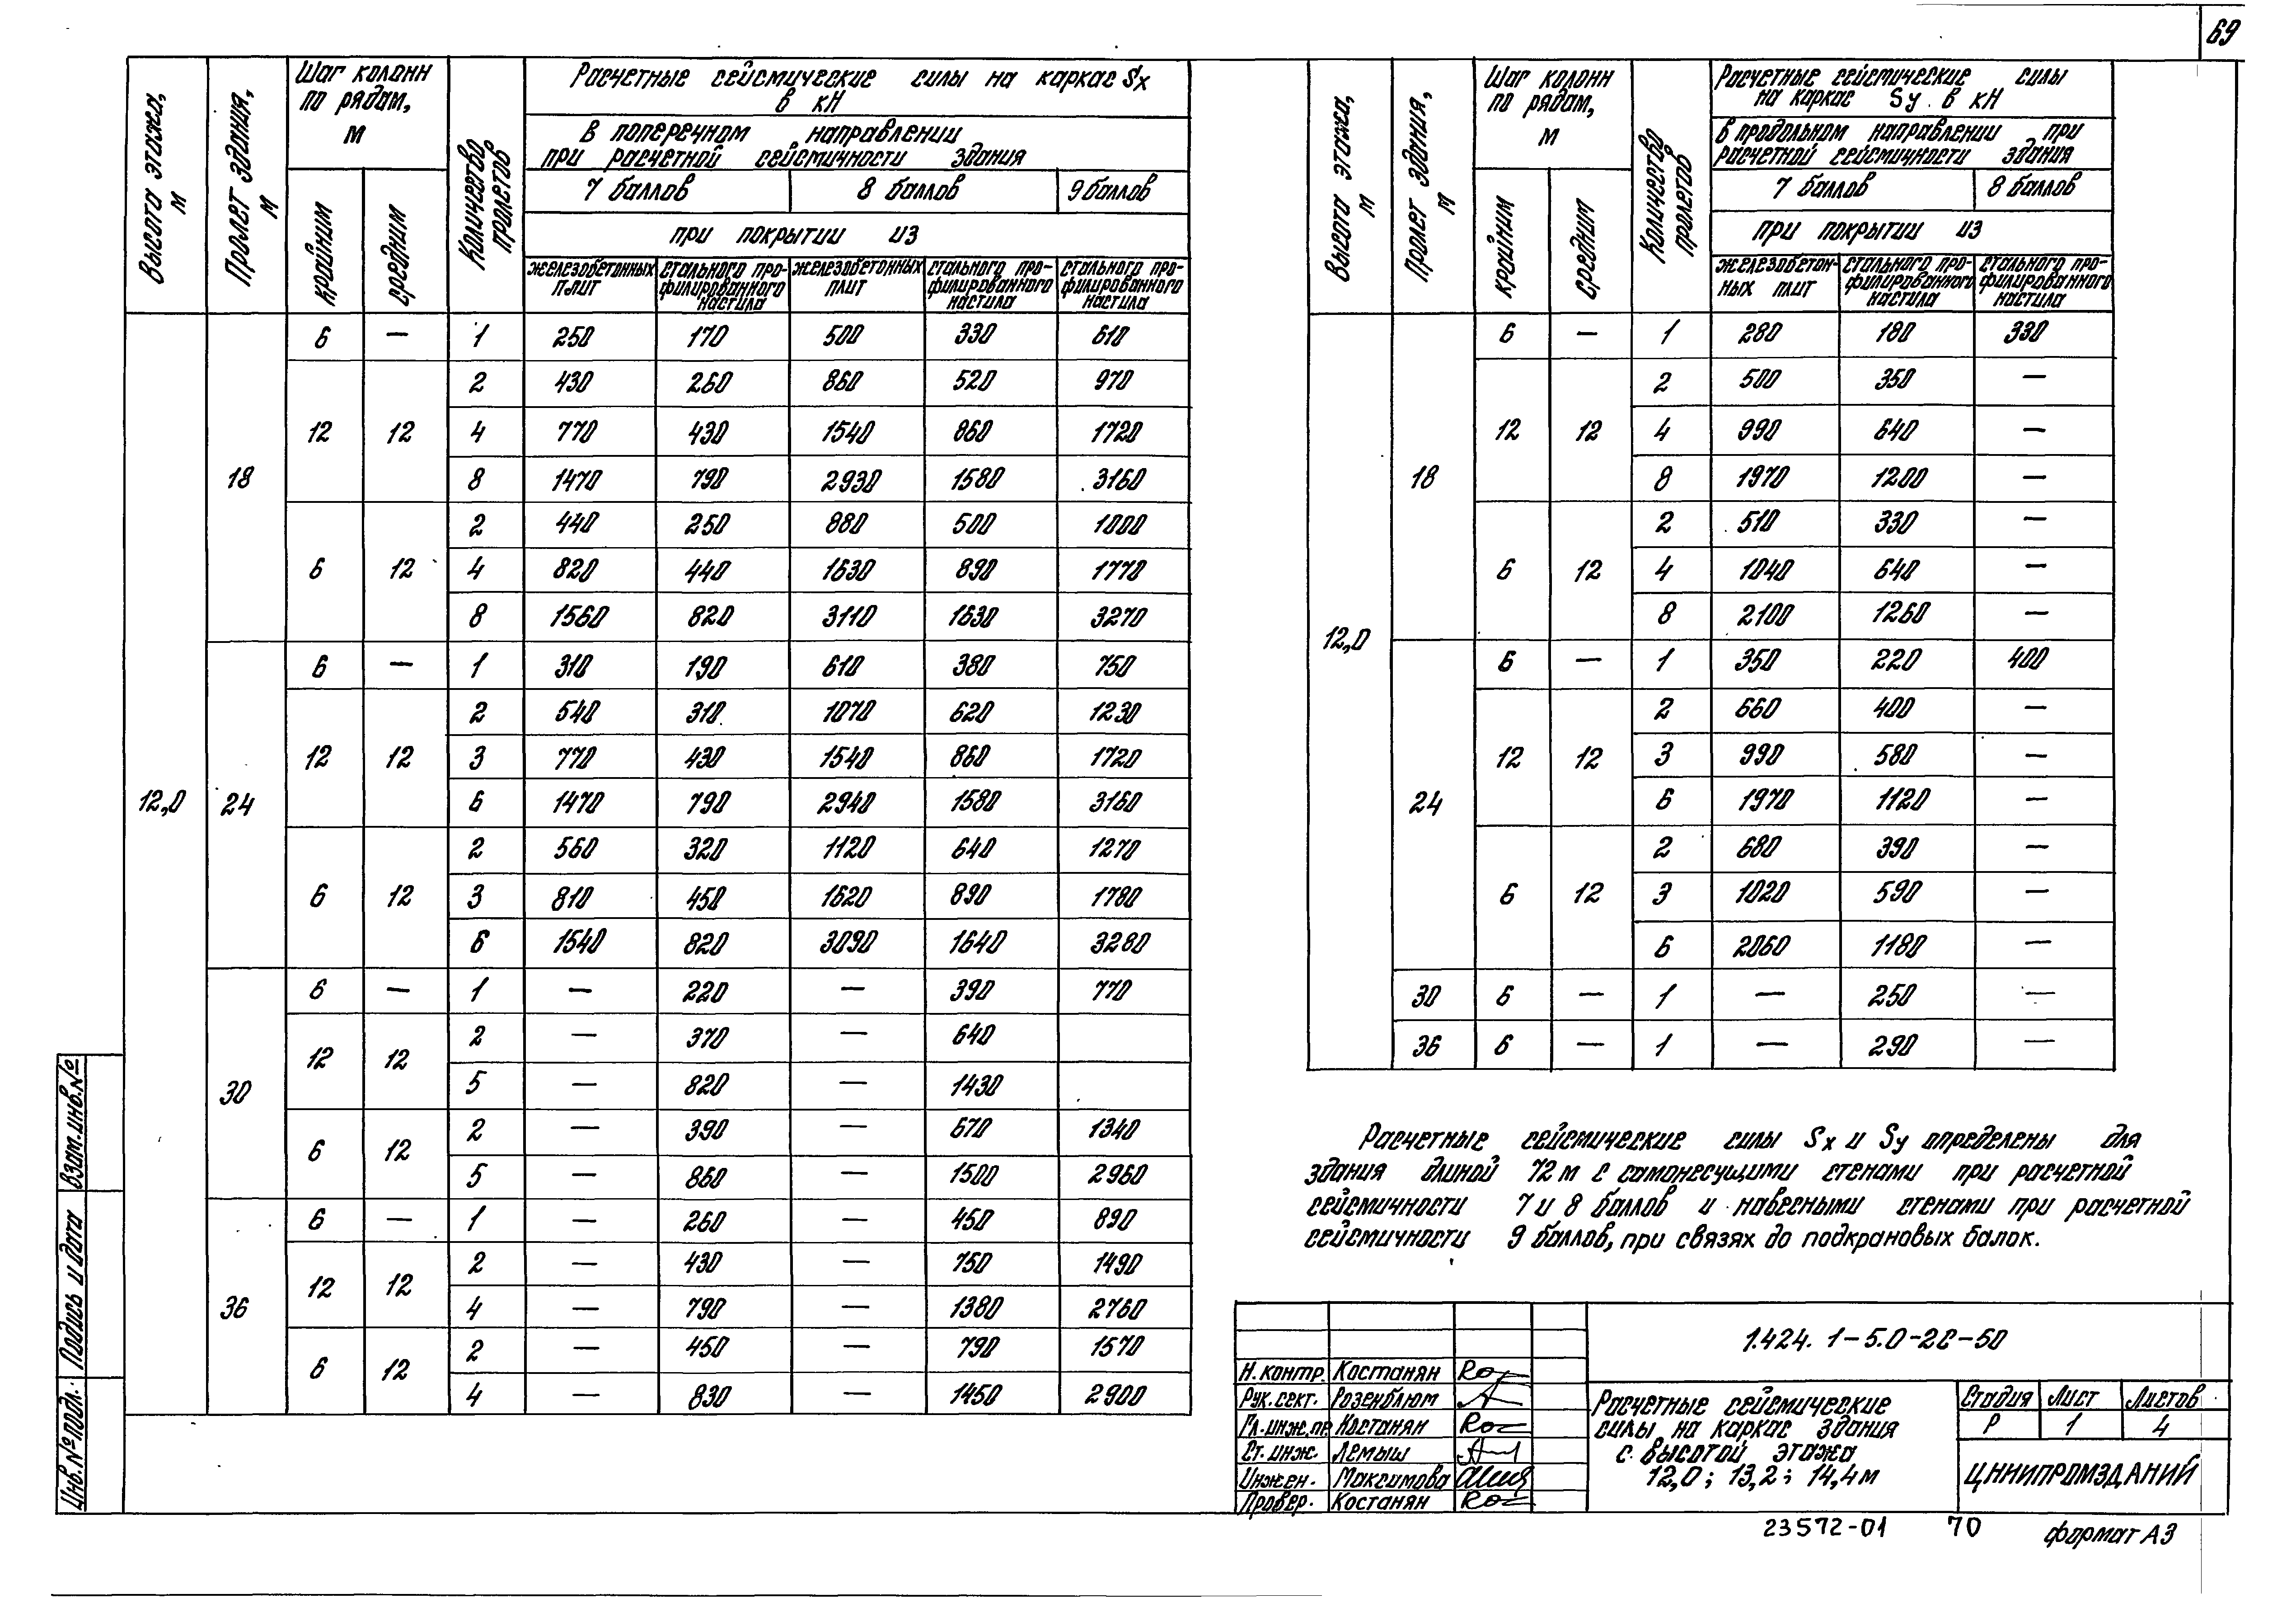 69
Высота этажа, м
Пролет здания, м
Шаг колонн по рядам, м
крайним
средним
Количество пролетов
Расчетные сейсмические силы на каркас Sx
в кН
в поперечном направлении
при расчетной сейсмичности здания
7 баллов 8 баллов 9 баллов
при покрытии из
железобетонных плит
стального профилированного настила
железобетонных плит
стального профилированного настила
стального профилированного настила
12,0
18
6 — 1 250 170 500 330 610
12 12 2 430 260 860 520 970
4 770 430 1540 860 1720
8 1470 790 2930 1580 3160
6 12 2 440 250 880 500 1000
4 820 440 1630 890 1770
8 1560 820 3110 1630 3270
24
6 — 1 310 190 610 380 750
12 12 2 540 310 1070 620 1230
3 770 430 1540 860 1720
6 1470 790 2940 1580 3160
6 12 2 560 320 1120 640 1270
3 810 450 1620 890 1780
6 1540 820 3090 1640 3280
30
6 — 1 — 220 — 390 770
12 12 2 — 370 — 640
5 — 820 — 1430
6 12 2 — 390 — 670 1340
5 — 860 — 1500 2960
36
6 — 1 — 260 — 450 890
12 12 2 — 430 — 750 1490
4 — 790 — 1380 2760
6 12 2 — 450 — 790 1570
4 — 830 — 1450 2900
Высота этажа, м
Пролет здания, м
Шаг колонн по рядам, м
крайним
средним
Количество пролетов
Расчетные сейсмические силы
на каркас Sy в кН
в продольном направлении при
расчетной сейсмичности здания
7 баллов 8 баллов
при покрытии из
железобетонных плит
стального профилированного настила
стального профилированного настила
12,0
18
6 — 1 280 180 330
12 12 2 500 350 —
4 990 640 —
8 1970 1200 —
6 12 2 510 330 —
4 1040 640 —
8 2100 1260 —
24
6 — 1 350 220 400
12 12 2 660 400 —
3 990 580 —
6 1970 1120 —
6 12 2 680 390 —
3 1020 590 —
6 2060 1180 —
30 6 — 1 — 250 —
36 6 — 1 — 290 —
Расчетные сейсмические силы Sx и Sy определены для
здания длиной 72 м с самонесущими стенами при расчетной
сейсмичности 7 и 8 баллов и навесными стенами при расчетной
сейсмичности 9 баллов, при связях до подкрановых балок.
Взам. инв. №
Подпись и дата
Инв. № подл.
1.424.1-5.0-2С-50
Н. контр. Костанян
Рук. сект. Розенблюм
Гл. инж. пр. Костанян
Ст. инж. Лемыш
Инжен. Максимова
Провер. Костанян
Расчетные сейсмические
силы на каркас здания
с высотой этажа
12,0; 13,2; 14,4 м
Стадия Лист Листов
Р 1 4
ЦНИИПРОМЗДАНИЙ
23572-01 70 формат А3